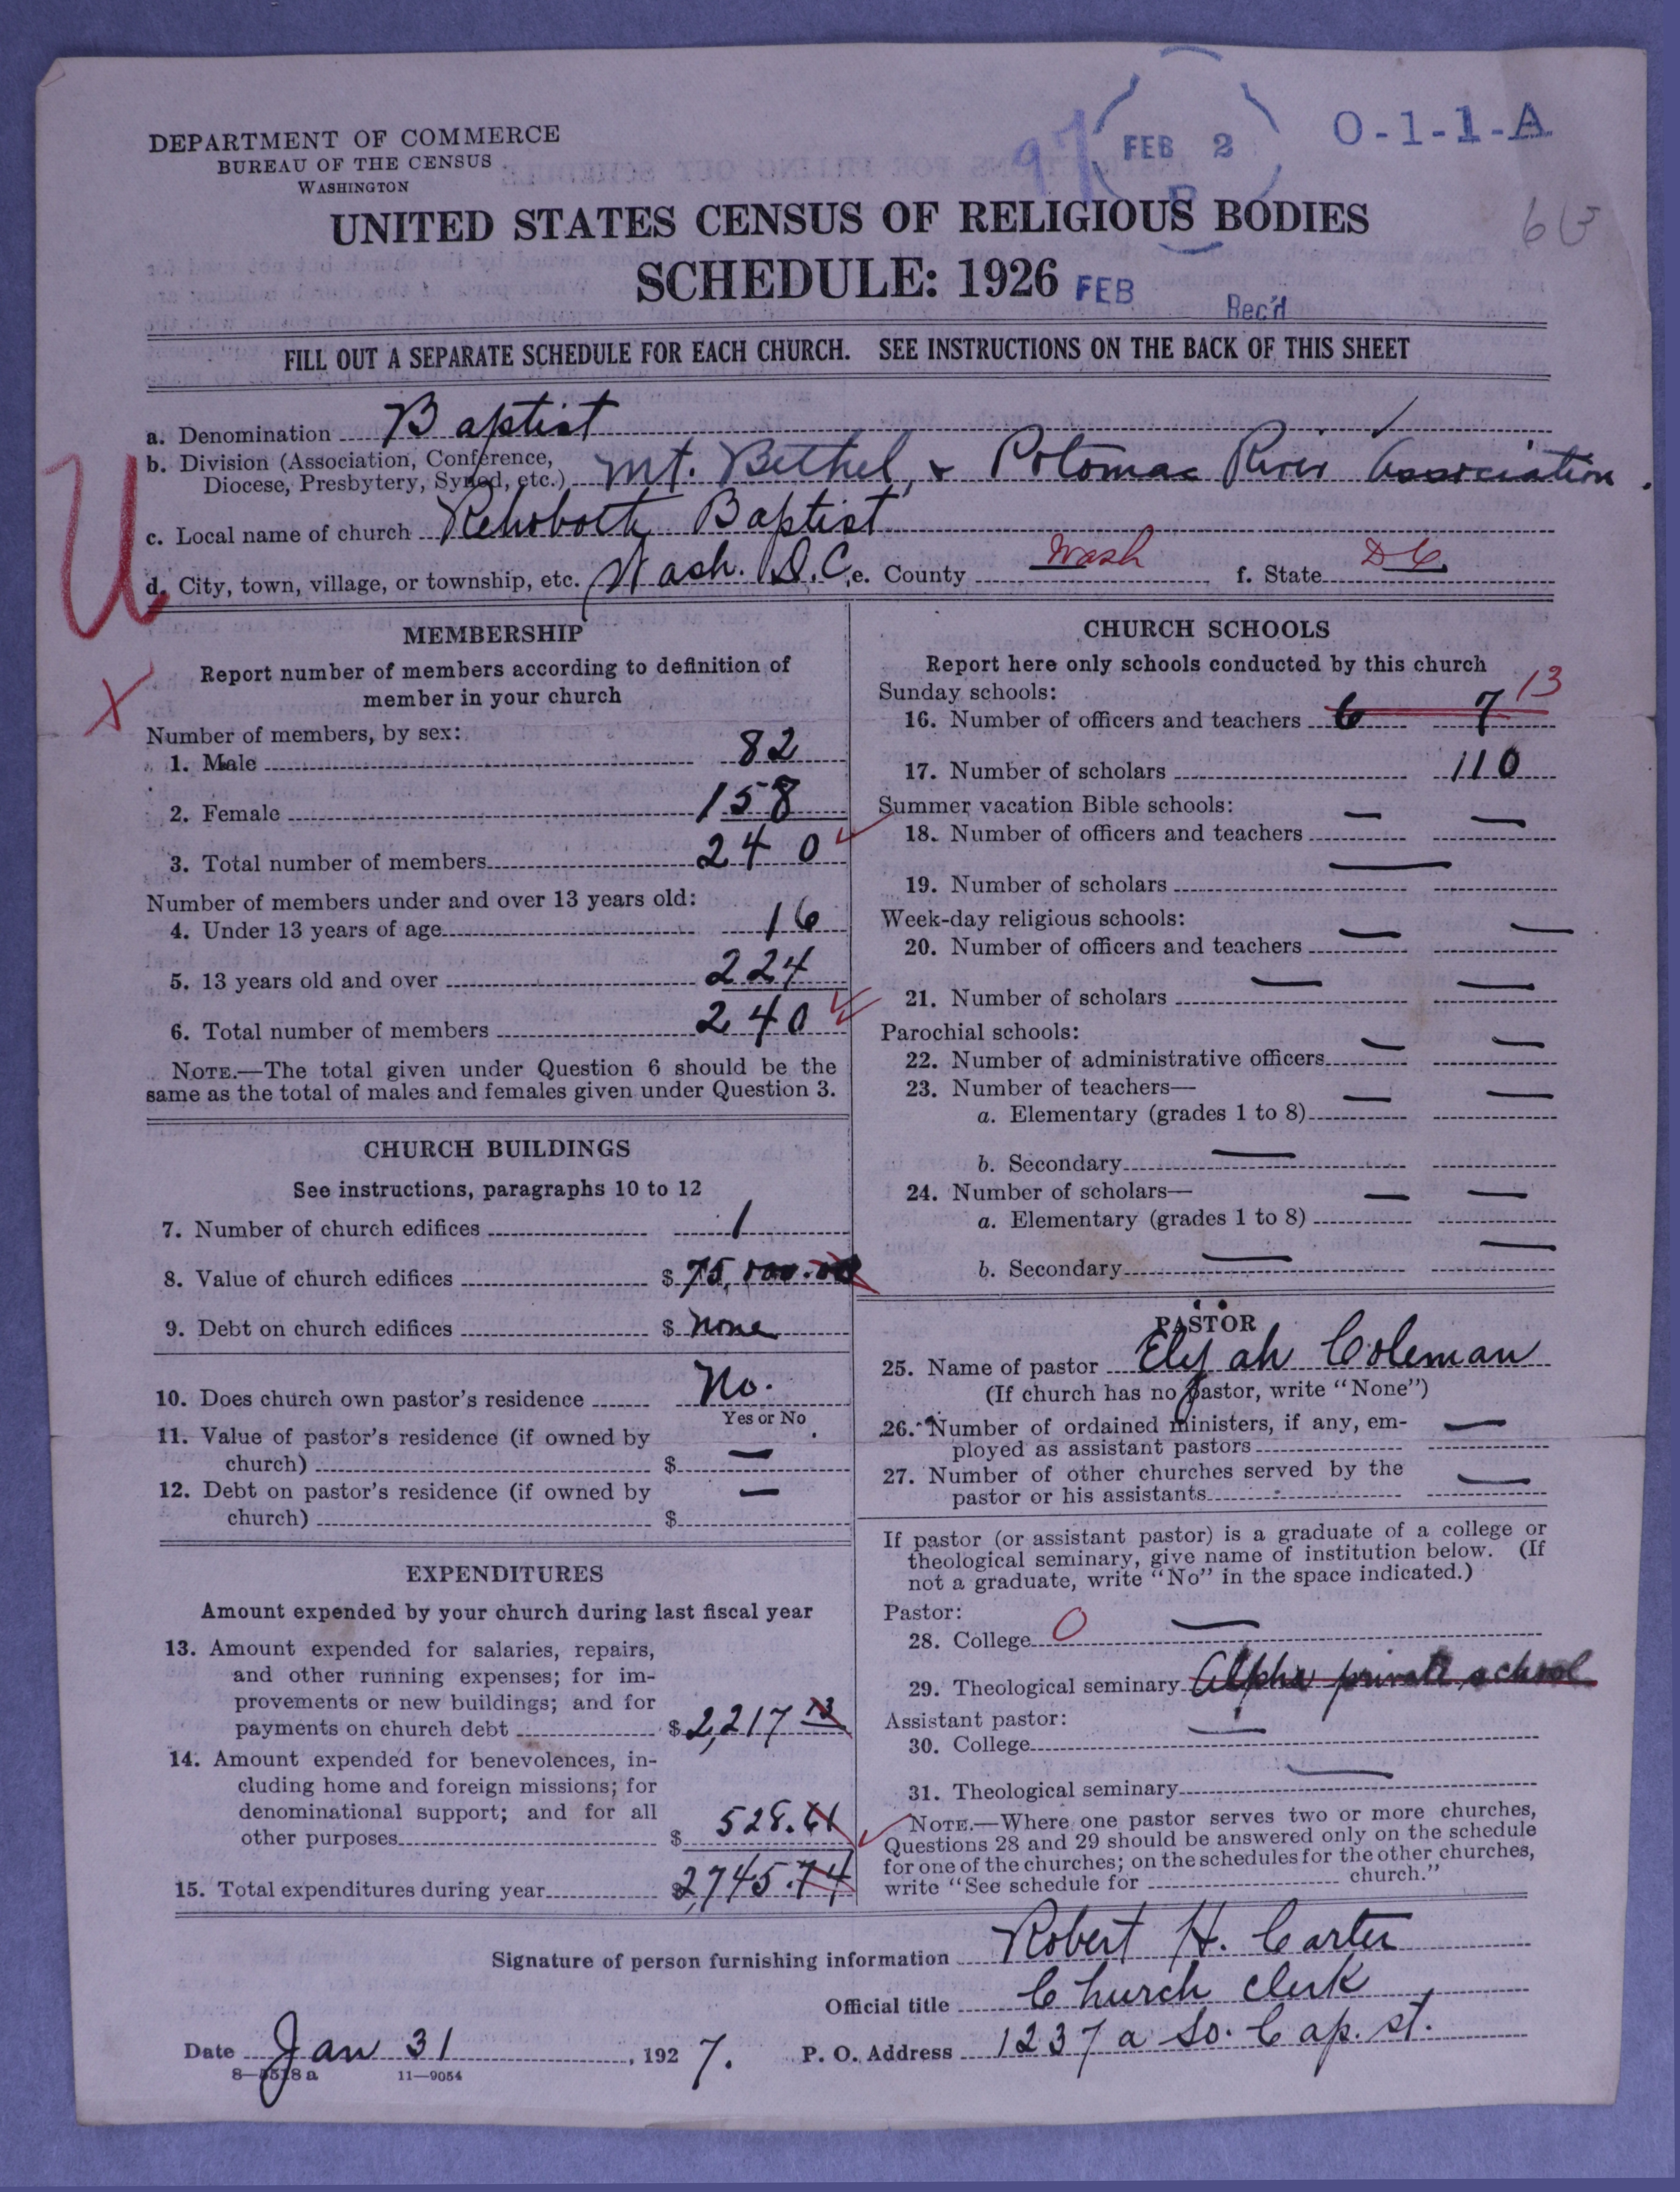 DEPARTMENT OF COMMERCE
BUREAU OF THE CENSUS
WASHINGTON
97
FEB 2
O-1-1-A
UNITED STATES CENSUS OF RELIGIOUS BODIES
SCHEDULE: 1926
FEB
Rec'd
FILL OUT A SEPARATE SCHEDULE FOR EACH CHURCH. SEE INSTRUCTIONS ON THE BACK OF THIS SHEET
a. Denomination Baptist
b. Division (Association, Conference, Diocese, Presbytery, Synod, etc.) Mt. Bethel, & Potomac River Association.
c. Local name of church Rehoboth Baptist
d. City, town, village, or township, etc. Wash. D.C. e. County Wash f. State DC.
U
X
MEMBERSHIP
Report number of members according to definition of
member in your church
Number of members, by sex:
1. Male 82
2. Female 158
3. Total number of members 240
Number of members under and over 13 years old:
4. Under 13 years of age 16
5. 13 years old and over 224
6. Total number of members 240
NOTE.—The total given under Question 6 should be the
same as the total of males and females given under Question 3.
CHURCH BUILDINGS
See instructions, paragraphs 10 to 12
7. Number of church edifices 1
8. Value of church edifices $ 75,000.00
9. Debt on church edifices $ none
10. Does church own pastor's residence No.
Yes or No
11. Value of pastor's residence (if owned by
church) $ —
12. Debt on pastor's residence (if owned by
church) $ —
EXPENDITURES
Amount expended by your church during last fiscal year
13. Amount expended for salaries, repairs,
and other running expenses; for im-
provements or new buildings; and for
payments on church debt $ 2,217 13
14. Amount expended for benevolences, in-
cluding home and foreign missions; for
denominational support; and for all
other purposes $ 528.61
15. Total expenditures during year $ 2,745.74
CHURCH SCHOOLS
Report here only schools conducted by this church
Sunday schools:
16. Number of officers and teachers 6 7 13
17. Number of scholars 110
Summer vacation Bible schools:
18. Number of officers and teachers — —
19. Number of scholars —
Week-day religious schools:
20. Number of officers and teachers — —
21. Number of scholars — —
Parochial schools:
22. Number of administrative officers — —
23. Number of teachers—
a. Elementary (grades 1 to 8) — —
b. Secondary —
24. Number of scholars—
a. Elementary (grades 1 to 8) — —
b. Secondary — —
PASTOR
25. Name of pastor Elijah Coleman
(If church has no pastor, write "None")
26. Number of ordained ministers, if any, em-
ployed as assistant pastors —
27. Number of other churches served by the
pastor or his assistants —
If pastor (or assistant pastor) is a graduate of a college or
theological seminary, give name of institution below. (If
not a graduate, write "No" in the space indicated.)
Pastor:
28. College O —
29. Theological seminary Alpha private school
Assistant pastor:
30. College —
31. Theological seminary —
NOTE.—Where one pastor serves two or more churches,
Questions 28 and 29 should be answered only on the schedule
for one of the churches; on the schedules for the other churches,
write "See schedule for church."
Signature of person furnishing information Robert H. Carter
Official title Church Clerk
Date Jan 31, 1927. P. O. Address 1237 a So. Cap. st.
8—5518 a 11—9054